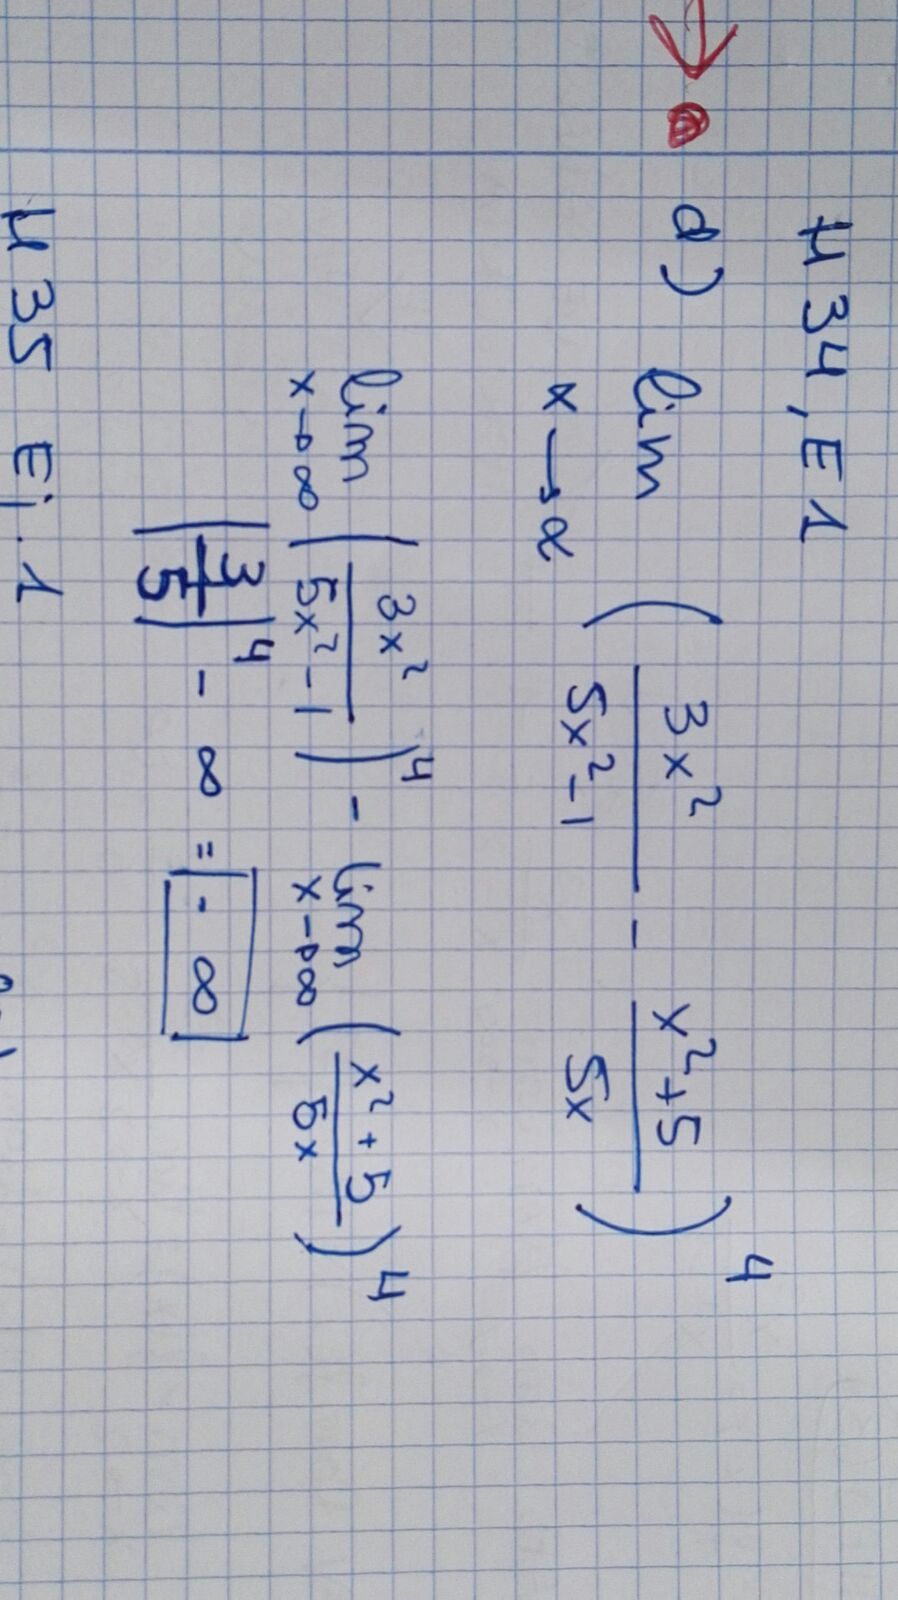 μ 34, E 1
d) lim x→∝ (3x²/(5x²-1) - (x²+5)/5x)⁴
lim x→∞ (3x²/(5x²-1))⁴ - lim x→∞ ((x²+5)/5x)⁴
|3/5|⁴ - ∞ = - ∞
μ 35 Ej. 1